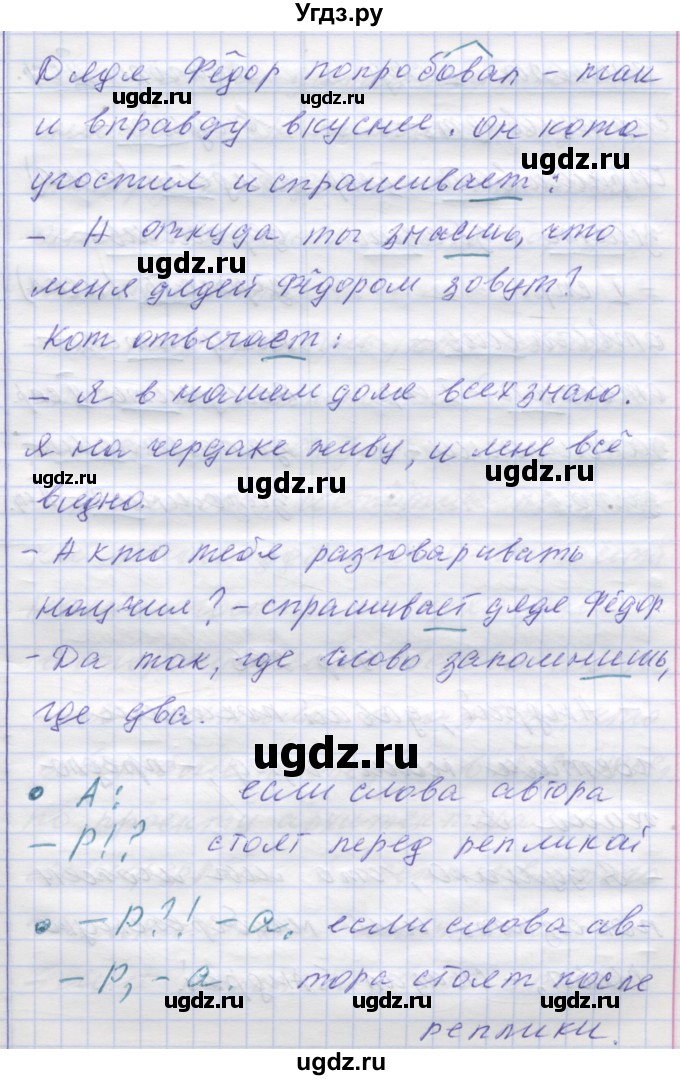 Угдз.ру
Дядя Фёдор попробовал – так
и вправду вкуснее. Он кота
угостил и спрашивает:
– А откуда ты знаешь, что
меня дядей Фёдором зовут?
Кот отвечает:
– Я в нашем доме всех знаю.
Я на чердаке живу, и мне всё
видно.
– А кто тебя разговаривать
научил? – спрашивает дядя Фёдор
– Да так, где слово запомнишь,
где два.
• А: если слова автора
– Р!? стоят перед репликой
• – Р?! – а. если слова ав-
– Р, – а. тора стоят после
реплики.
ugdz.ru
ugdz.ru
ugdz.ru
ugdz.ru
ugdz.ru
ugdz.ru
ugdz.ru
ugdz.ru
ugdz.ru
ugdz.ru
ugdz.ru
ugdz.ru